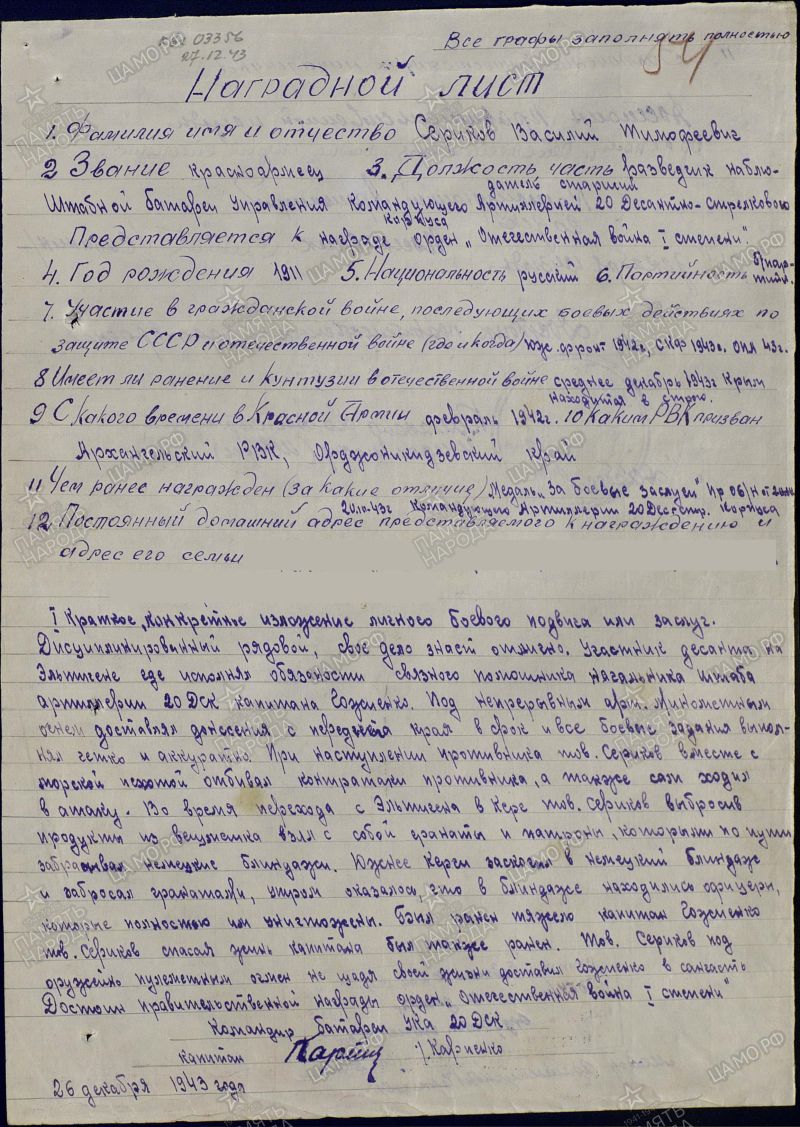 03356
27.12.43
Все графы заполнять полностью
Наградной лист
1. Фамилия имя и отчество Сериков Василий Тимофеевич
2 Звание красноармеец 3. Должность, часть разведчик наблю-
датель старший
Штабной батареи Управления Командующего Артиллерией 20 Десантно-стрелкового
корпуса
Представляется к награде орден „Отечественная война I степени".
4. Год рождения 1911 5. Национальность русский 6. Партийность
7. Участие в гражданской войне, последующих боевых действиях по
защите СССР и отечественной войне (где и когда) Юж. фронт 1942г, 1943г. 43г.
8 Имеет ли ранение и кунтузии в отечественной войне среднее декабрь 1943г Крым
находится в строю.
9 С какого времени в Красной Армии февраль 1942г. 10 Каким РВК призван
Архангельский РВК, Орджоникидзевский край
11 Чем ранее награжден (за какие отличие) Медаль „За боевые заслуги" Пр 06/н
43г Командующего Артиллерии 20 Дес. стр. корпуса
12. Постоянный домашний адрес представляемого к награждению и
адрес его семьи
I Краткое, конкретные изложение личного боевого подвига или заслуг.
Дисциплинированный рядовой, свое дело знает отлично. Участник десанта на
Эльтигене где исполнял обязоности связного помошника начальника штаба
артиллерии 20 ДСК капитана Гожиенко. Под непрерывным арт. Минометным
огнем доставлял донесения с переднего края в срок и все боевые задания выпол-
нял четко и аккуратно. При наступлении противника тов. Сериков вместе с
морской пехотой отбивал контратаки противника, а также сам ходил
в атаку. Во время перехода с Эльтигена в Керч тов. Сериков выбросив
продукты из вещмешка взял с собой гранаты и патроны, которыми по пути
забрасывал немецкие блиндажи. Южнее Керчи заскочил в немецкий блиндаж
и забросал гранатами, утром оказалось, что в блиндаже находились офицеры,
которые полностью им уничтожены. Был ранен тяжело капитан Гожиенко
тов. Сериков спасая жизнь капитана был также ранен. Тов. Сериков под
оружейно пулеметным огнем не щадя своей жизни доставил Гожиенко в санчасть
Достоин правительственной награды орден „Отечественная война I степени"
Командир батареи УКА 20 ДСК
капитан
26 декабря 1943 года
ЦАМО РФ
ПАМЯТЬ
НАРОДА